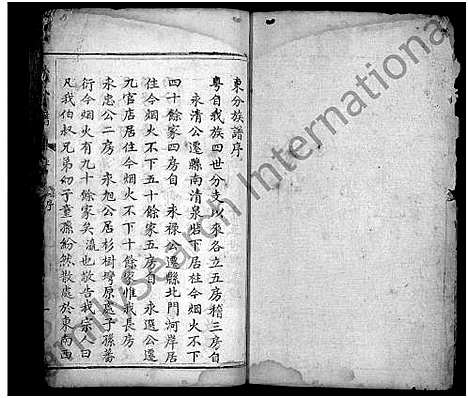 東分族譜序
粵自我族四世分支以來各立五房稽三房自
永清公遷縣南清泉岩下居住今烟火不下
四十餘家四房自　永祿公遷縣北門河岸居
住今烟火不下五十餘家五房自　永遐公遷
九官店居住今烟火不下十餘家惟我長房
永忠公二房　永旭公居杉樹壪原處子孫蕃
衍今烟火有九十餘家矣瀛也敬告我宗人曰
凡我伯叔兄弟幼子童孫紛然散處於東南西
FamilySearch International